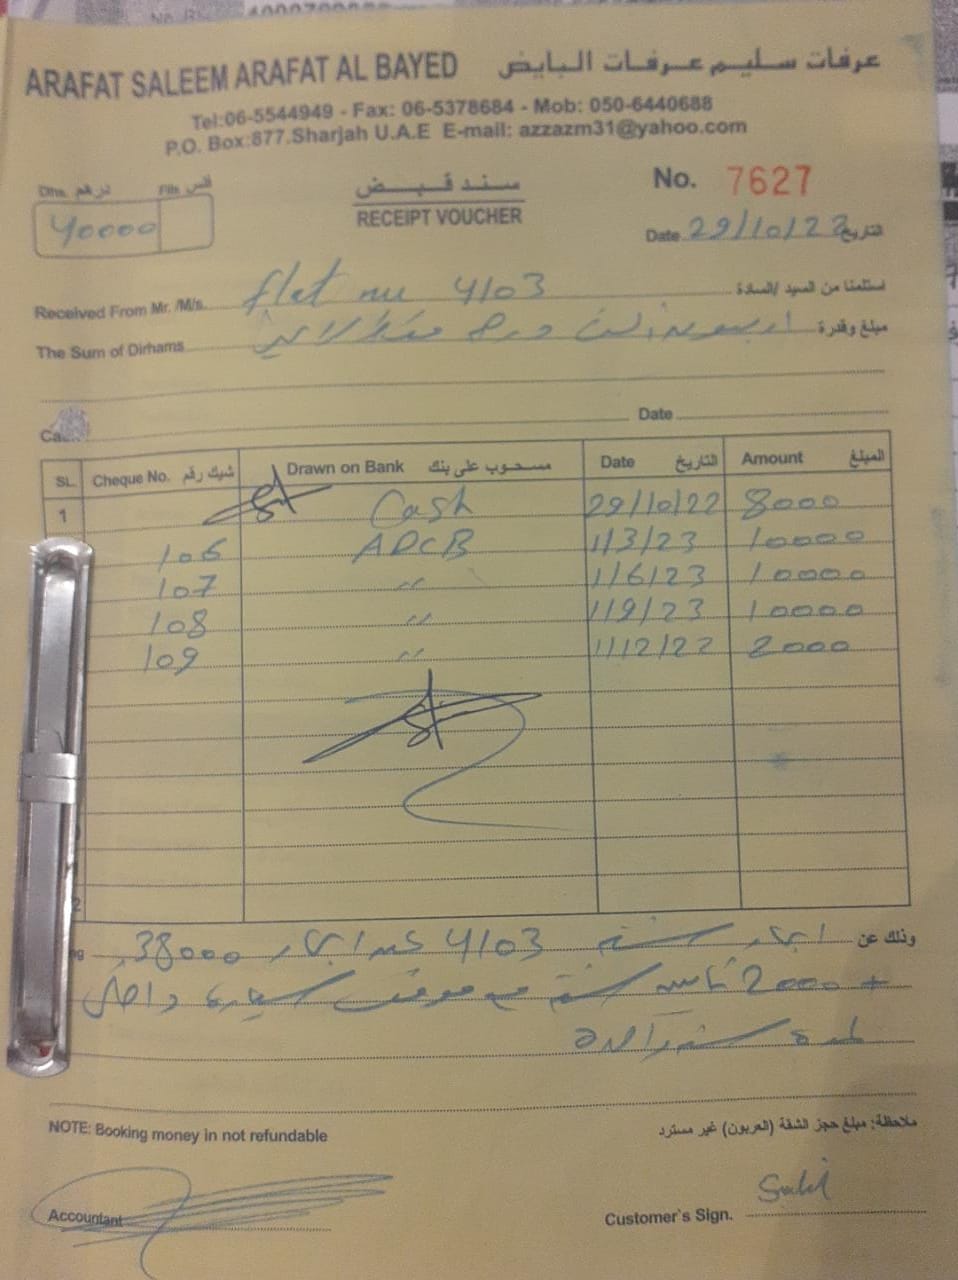 ARAFAT SALEEM ARAFAT AL BAYED عرفات سليم عرفات البايض
Tel:06-5544949 - Fax: 06-5378684 - Mob: 050-6440688
P.O. Box:877.Sharjah U.A.E E-mail: azzazm31@yahoo.com
Dhs. درهم Fils فلس
40000
سند قبض
RECEIPT VOUCHER
No. 7627
Date 29/10/22 التاريخ
Received From Mr. /M/s. flat no 4103 استلمنا من السيد /السادة
The Sum of Dirhams اربعون الف درهم فقط لا غير مبلغ وقدرة
Date
SL. Cheque No. شيك رقم Drawn on Bank مسحوب على بنك Date التاريخ Amount المبلغ
1 Cash 29/10/22 8000
106 ADCB 1/3/23 10000
107 " 1/6/23 10000
108 " 1/9/23 10000
109 " 1/12/22 2000
وذلك عن ايجار شقة 4103 ايجار 38000
+ 2000 تامين شقة مع موقف سيارة داخلي
لمدة سنة واحدة
NOTE: Booking money in not refundable ملاحظة: مبلغ حجز الشقة (العربون) غير مسترد
Accountant
Customer's Sign.